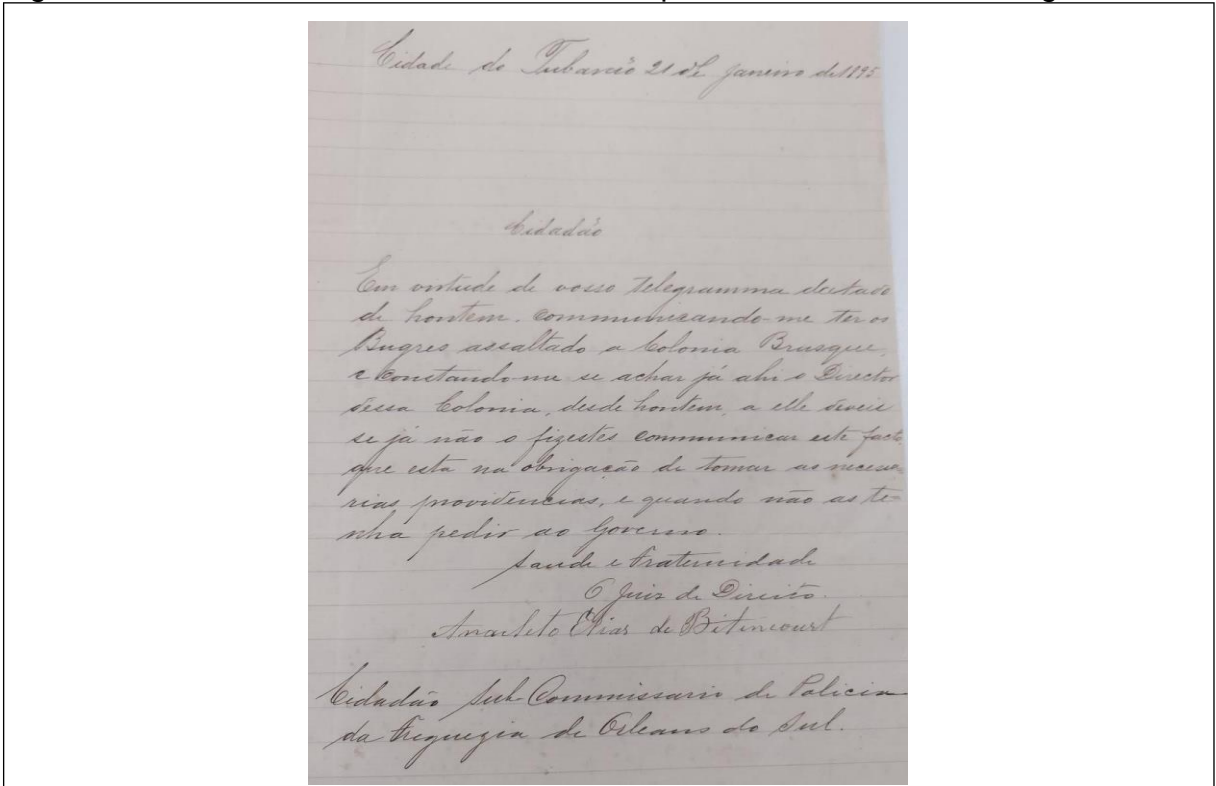 Cidade do Tubarão 21 de Janeiro de 1895
Cidadão
Em virtude de vosso telegramma dactado
de hontem, communicando-me ter os
Bugres assaltado a Colonia Brusque,
e constando-me se achar já ahi o Director
dessa Colonia, desde hontem, a elle deveis
se já não o fizestes communicar este facto,
que esta na obrigação de tomar as necessa-
rias providencias, e quando não as te-
nha pedir ao Governo.
Saude e Fraternidade
O Juiz de Direito.
Anacleto Elias de Bitencourt
Cidadão Sub Commissario de Policia
da Freguezia de Orleans do Sul.